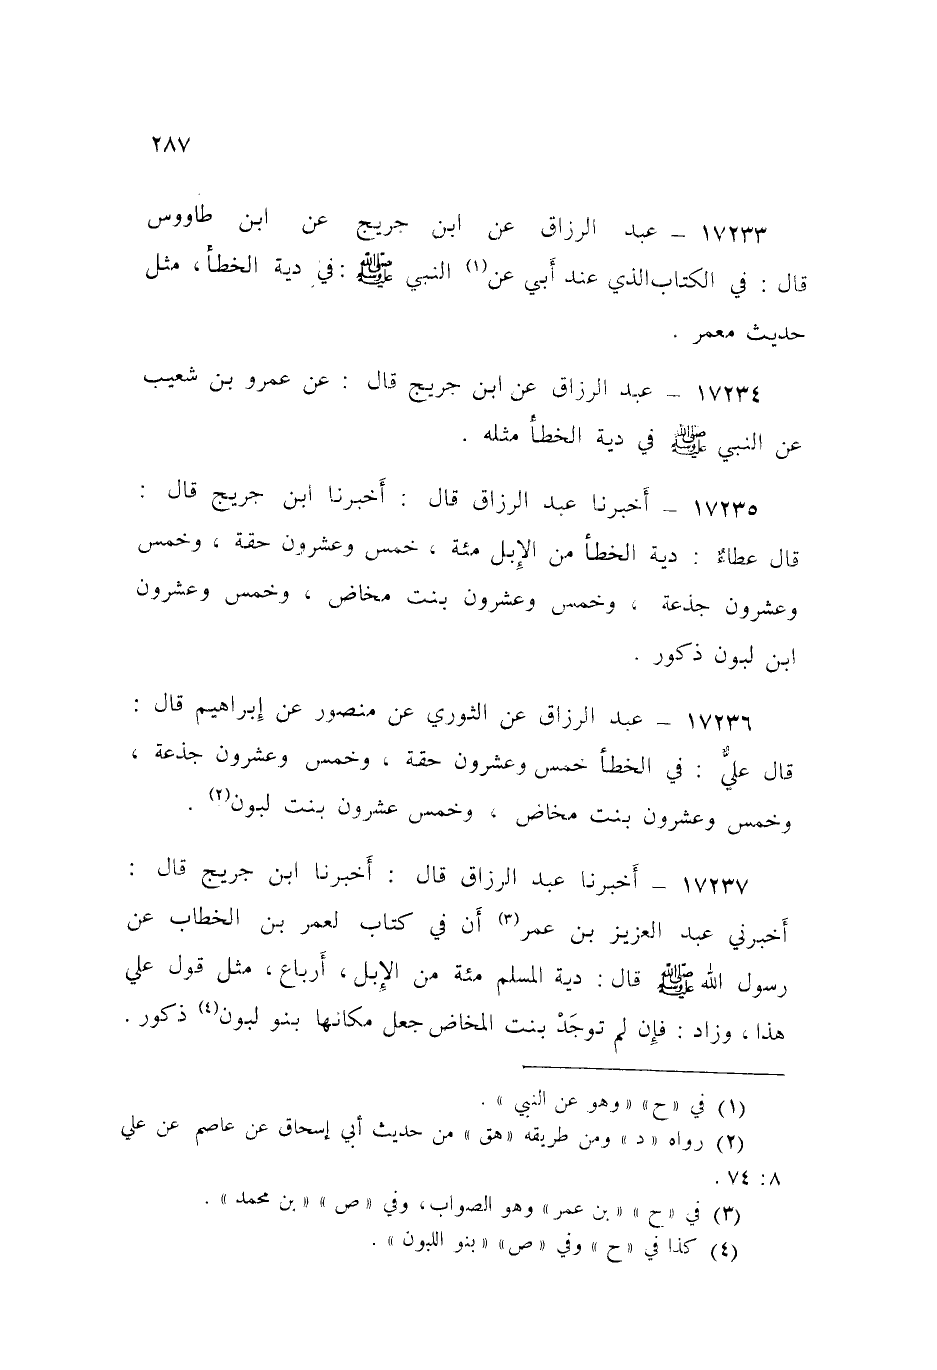 ٢٨٧
١٧٢٣٣ – عبد الرزاق عن ابن جريج عن ابن طاووس
قال : في الكتاب الذي عند أبي عن(١) النبي ﷺ : في دية الخطأ ، مثل
حديث معمر .
١٧٢٣٤ – عبد الرزاق عن ابن جريج قال : عن عمرو بن شعيب
عن النبي ﷺ في دية الخطأ مثله .
١٧٢٣٥ – أخبرنا عبد الرزاق قال : أخبرنا ابن جريج قال :
قال عطاءٌ : دية الخطأ من الإبل مئة ، خمس وعشرون حقة ، وخمس
وعشرون جذعة ، وخمس وعشرون بنت مخاض ، وخمس وعشرون
ابن لبون ذكور .
١٧٢٣٦ – عبد الرزاق عن الثوري عن منصور عن إبراهيم قال :
قال عليٌّ : في الخطأ خمس وعشرون حقة ، وخمس وعشرون جذعة ،
وخمس وعشرون بنت مخاض ، وخمس عشرون بنت لبون(٢) .
١٧٢٣٧ – أخبرنا عبد الرزاق قال : أخبرنا ابن جريج قال :
أخبرني عبد العزيز بن عمر(٣) أن في كتاب لعمر بن الخطاب عن
رسول الله ﷺ قال : دية المسلم مئة من الإبل ، أرباع ، مثل قول علي
هذا ، وزاد : فإن لم توجَدْ بنت المخاض جعل مكانها بنو لبون(٤) ذكور .
(١) في «ح» «وهو عن النبي » .
(٢) رواه « د » ومن طريقه «هق » من حديث أبي إسحاق عن عاصم عن علي
٨: ٧٤ .
(٣) في « ح » « بن عمر» وهو الصواب ، وفي « ص » « بن محمد » .
(٤) كذا في « ح » وفي « ص» « بنو اللبون » .